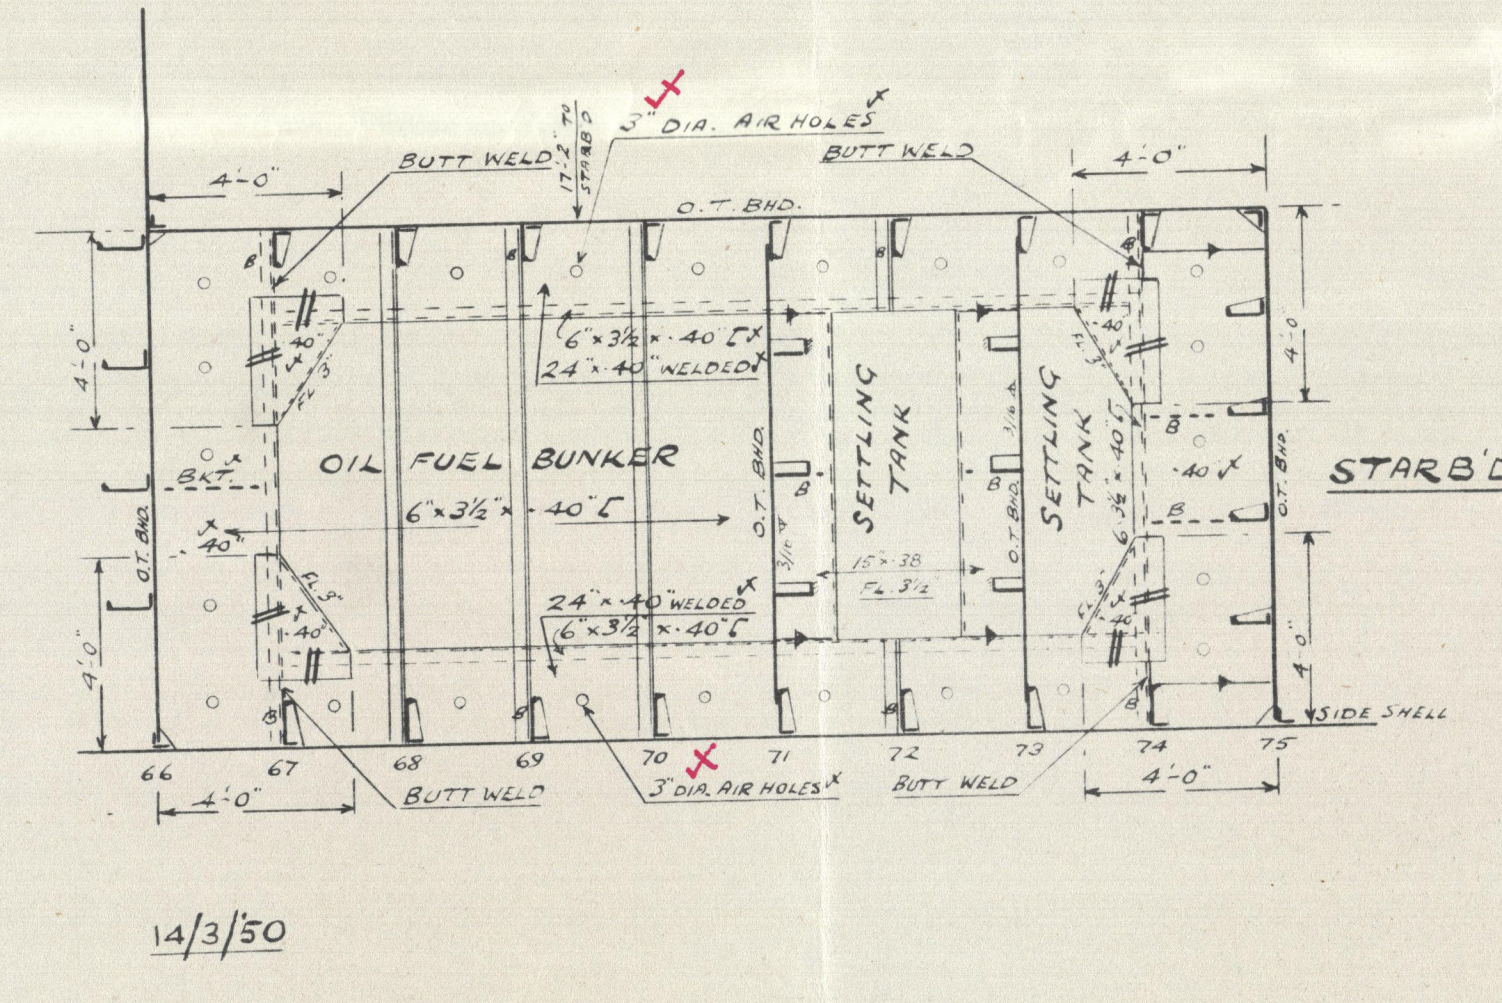 3" DIA. AIR HOLES
17'-2" TO
STARB'D
BUTT WELD
BUTT WELD
4'-0"
4'-0"
O.T. BHD.
B
B
B
B
4'-0"
4'-0"
6" x 3½" x .40" [
24" x .40" WELDED
.40"
FL 3"
.40"
FL 3"
OIL FUEL BUNKER
6" x 3½" x .40" [
BKT.
.40"
O.T. BHD.
O.T. BHD.
3/16
SETTLING
TANK
B
B
3/16
O.T. BHD.
SETTLING
TANK
6" x 3½" x .40" [
B
.40"
B
O.T. BHD.
STARB'D
15" x .38
FL. 3½"
24" x .40" WELDED
6" x 3½" x .40" [
FL 3"
.40"
FL 3"
.40"
4'-0"
4'-0"
B
B
B
B
SIDE SHELL
66 67 68 69 70 71 72 73 74 75
4'-0"
BUTT WELD
3" DIA. AIR HOLES
BUTT WELD
4'-0"
14/3/'50